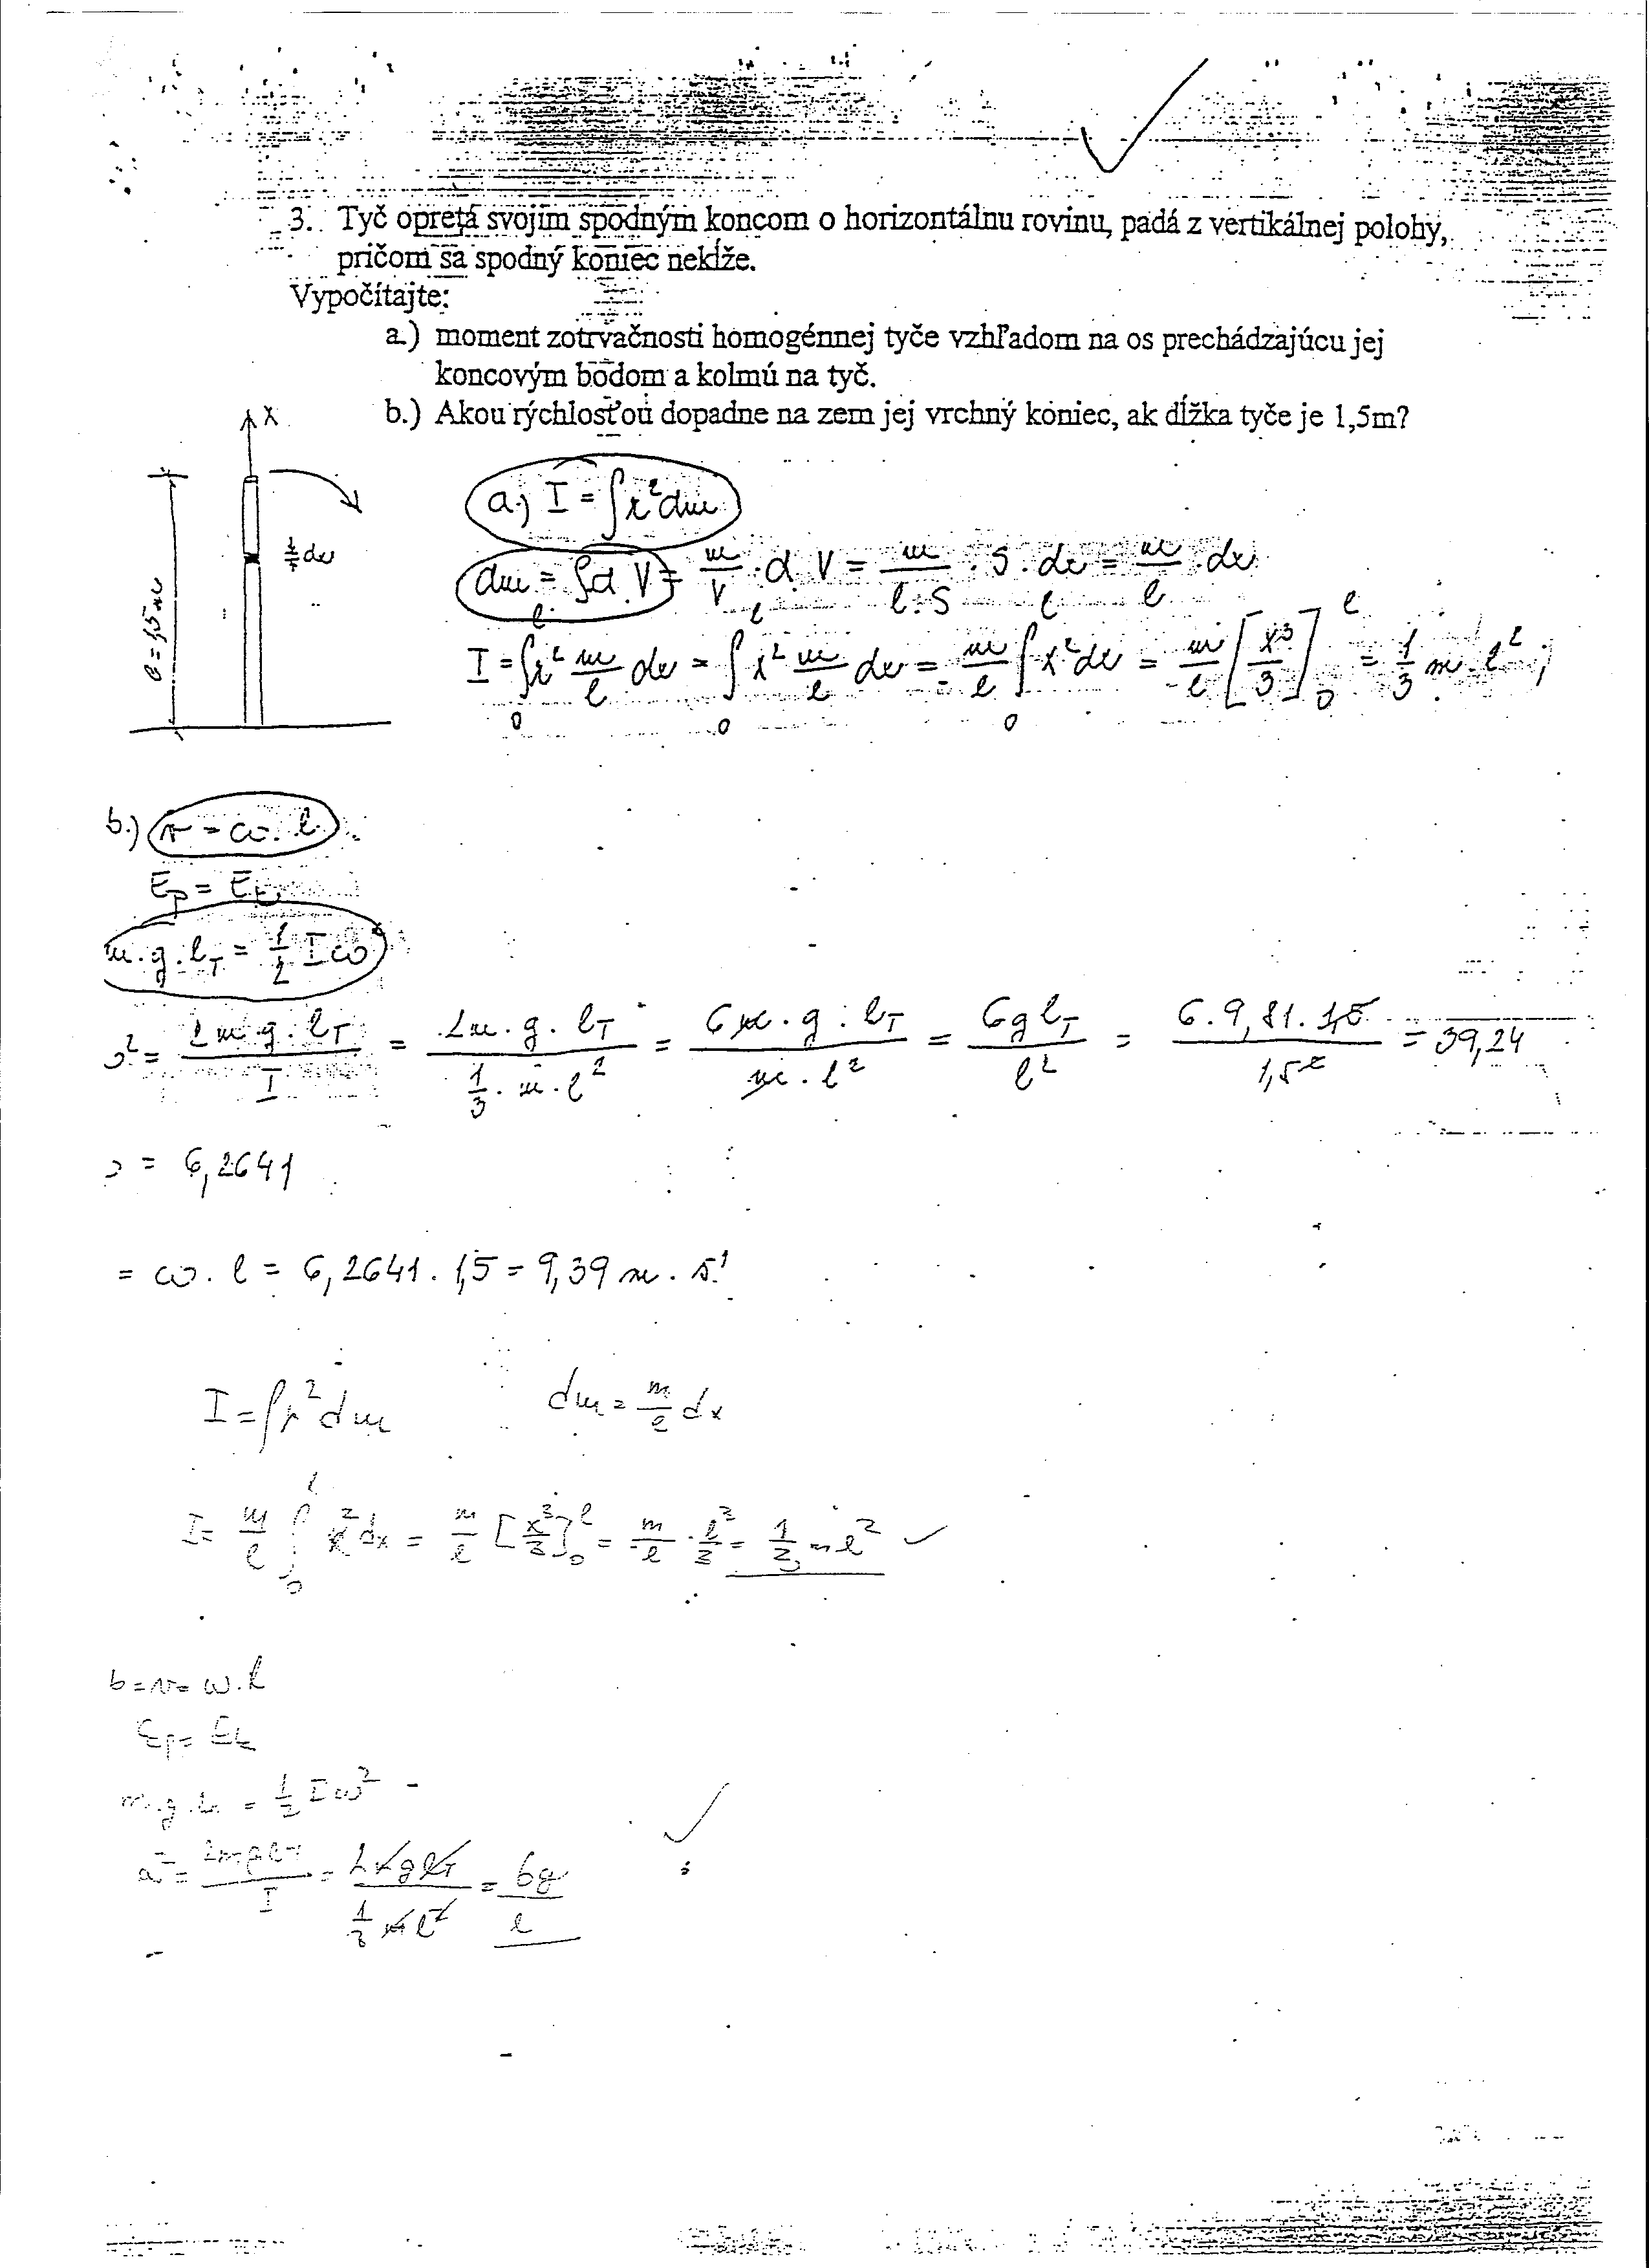 3. Tyč opretá svojím spodným koncom o horizontálnu rovinu, padá z vertikálnej polohy,
pričom sa spodný koniec nekĺže.
Vypočítajte:
a.) moment zotrvačnosti homogénnej tyče vzhľadom na os prechádzajúcu jej
koncovým bodom a kolmú na tyč.
b.) Akou rýchlosťou dopadne na zem jej vrchný koniec, ak dĺžka tyče je 1,5m?
x
dx
l = 1,5m
a.) I = ∫ r² dm
dm = ρd.V = m/V · d V = m/(l.S) · S · dx = m/l · dx
I = ∫₀ˡ r² m/l dx = ∫₀ˡ x² m/l dx = m/l ∫₀ˡ x² dx = m/l [x³/3]₀ˡ = 1/3 m · l² ;
b.) v = ω · l
Ep = Ek
m.g.l_T = 1/2 I ω²
ω² = 2m.g.l_T / I = 2m.g.l_T / (1/3 · m · l²) = 6m.g.l_T / (m.l²) = 6 g l_T / l² = 6.9,81.1,5 / 1,5² = 39,24
ω = 6,2641
= ω. l = 6,2641 . 1,5 = 9,39 m . s⁻¹
I = ∫ r² dm dm = m/l dx
I = m/l ∫₀ˡ x² dx = m/l [x³/3]₀ˡ = m/l · l³/3 = 1/3 m l² ✓
b = v = ω.l
Ep = Ek
m.g.l_T = 1/2 I ω²
ω² = 2mgl_T / I = 2mgl_T / (1/3 m l²) = 6g / l